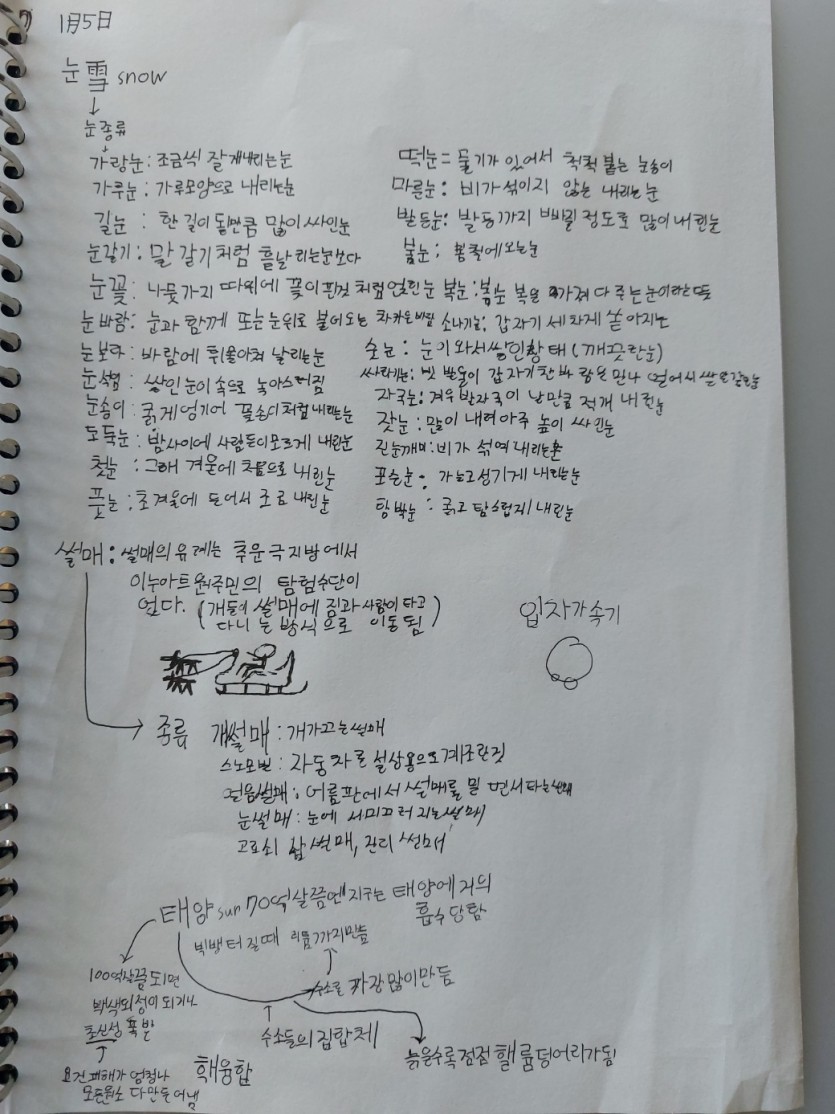 1月5日
눈 雪 snow
눈종류
가랑눈 : 조금씩 잘게내리는눈
가루눈 : 가루모양으로 내리는눈
길눈 : 한 길이 될만큼 많이 싸인눈
눈갈기 : 말 갈기처럼 흩날리는눈보다
눈꽃 : 나뭇가지 따위에 꽃이 핀것 처럼 얹힌눈
눈바람 : 눈과 함께 또는 눈위로 불어오는 차가운바람
눈보라 : 바람에 휘몰아쳐 날리는눈
눈석임 : 쌓인 눈이 속으로 녹아스러짐
눈송이 : 굵게엉기어 꽃송이처럼내리는눈
도둑눈 : 밤사이에 사람들이모르게 내린눈
첫눈 : 그해 겨울에 처음으로 내린눈
풋눈 : 초겨울에 들어서 조금 내린눈
떡눈 = 물기가 있어서 척척 붙는 눈송이
마른눈 : 비가 섞이지 않는 내리는 눈
발등눈 : 발등까지 빠질 정도로 많이 내린눈
봄눈 : 봄철에오는눈
복눈 : 봄눈 복을 가져다 주는 눈이라는뜻
소나기눈 : 갑자기 세차게 쏟아지는
숫눈 : 눈이 와서쌓인상태 (깨끗한눈)
싸라기눈 : 빗방울이 갑자기 찬바람을 만나 얼어서
자국눈 : 겨우발자국이 날만큼 적게 내린눈
잣눈 : 많이 내려아주 높이 싸인눈
진눈깨비 : 비가 섞여내리는눈
포슬눈 : 가늘고성기게 내리는눈
함박눈 : 굵고 탐스럽게 내린눈
썰매 : 썰매의 유례는 추운극지방에서
이누아트 원주민의 탐험수단이
었다. (개들이 썰매에 짐과 사람이 타고
다니는 방식으로 이동됨)
입자가속기
종류 개썰매 : 개가끄는썰매
스노모빌 : 자동차를 설상용으로개조한것
얼음썰매 : 어름판에서 썰매를 밀면서타는썰매
눈썰매 : 눈에서미끄러지는썰매
고로쇠 참썰매, 잔디썰매
태양 sun 70억살쯤엔 지구는 태양에거의
흡수당함
빅뱅 터질때 리튬까지만듬
수소를 가장많이만듬
100억살쯤되면
백색외성이되거나
초신성 폭발
수소들의집합체
늙을수록점점 헬륨덩어리가됨
핵융합
요건 피해가 엄청나
모든원소 다만들어냄